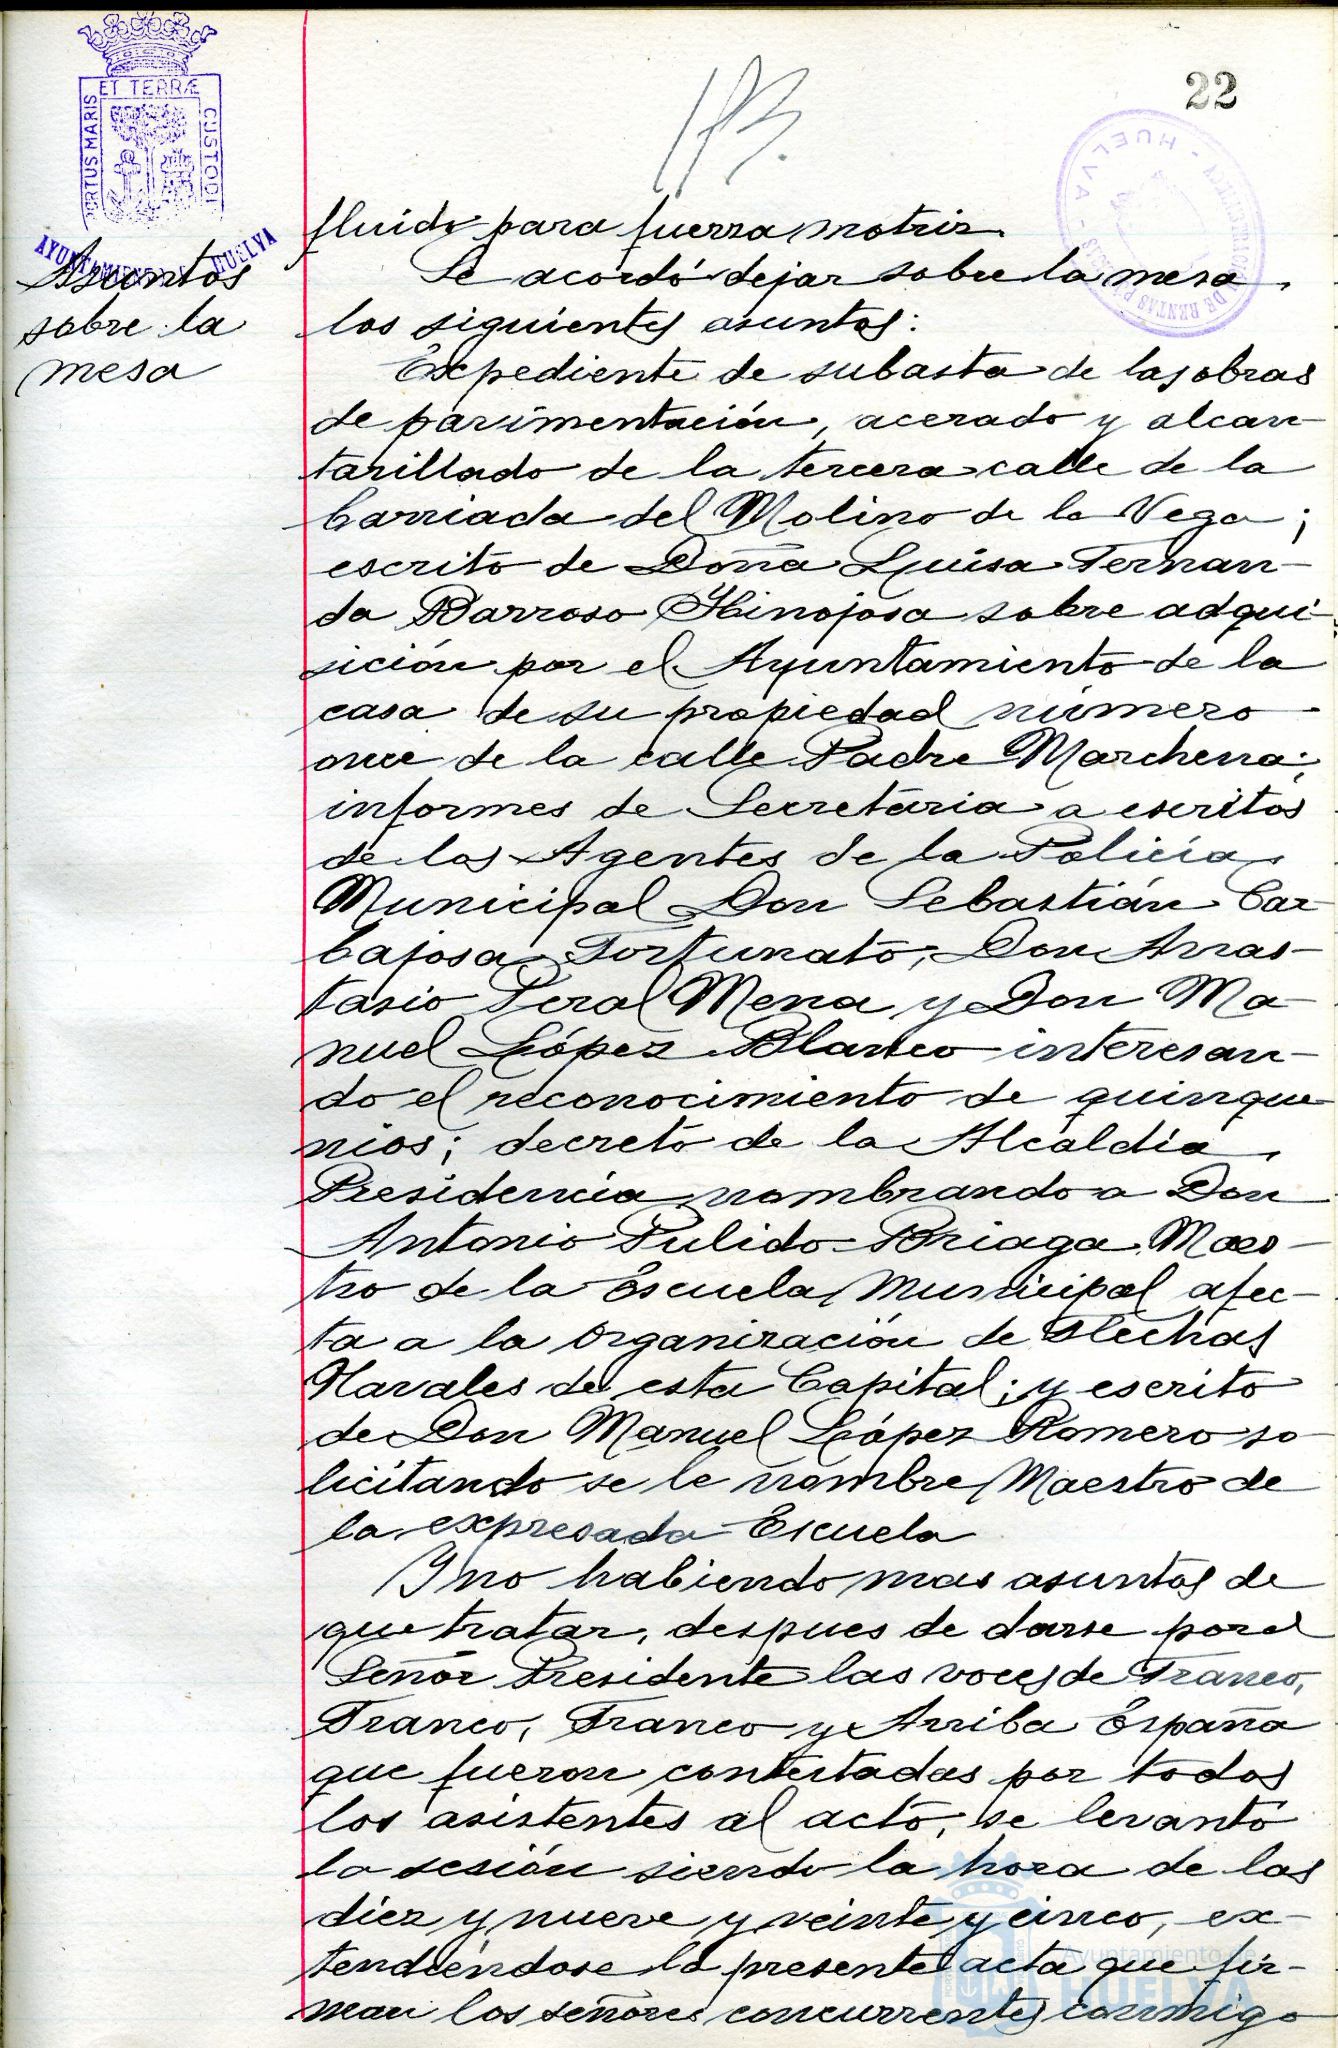 22
113.
PORTUS MARIS
ET TERRÆ
CUSTODI
AYUNTAMIENTO DE HUELVA
HUELVA
DE RENTAS PÚBLICAS
Asuntos
sobre la
mesa
fluido para fuerza motriz.
Se acordó dejar sobre la mesa
los siguientes asuntos:
Expediente de subasta de las obras
de pavimentación, acerado y alcan-
tarillado de la tercera calle de la
barriada del Molino de la Vega;
escrito de Doña Luisa Fernan-
da Barroso Hinojosa sobre adqui-
sición por el Ayuntamiento de la
casa de su propiedad número
once de la calle Padre Marchena;
informes de Secretaria a escritos
de los Agentes de la Policía
Municipal Don Sebastián Car-
bajosa Fortunato, Don Anas-
tasio Peral Mena y Don Ma-
nuel López Blanco interesan-
do el reconocimiento de quinque-
nios; decreto de la Alcaldía
Presidencia nombrando a Don
Antonio Pulido Briaga Maes-
tro de la Escuela Municipal afec-
ta a la Organización de Flechas
Navales de esta Capital; y escrito
de Don Manuel López Romero so-
licitando se le nombre Maestro de
la expresada Escuela
Y no habiendo mas asuntos de
que tratar, despues de darse por el
Señor Presidente las voces de Franco,
Franco, Franco y Arriba España
que fueron contestadas por todos
los asistentes al acto, se levantó
la sesión siendo la hora de las
diez y nueve y veinte y cinco, ex-
tendiéndose la presente acta que fir-
man los señores concurrentes conmigo
Ayuntamiento de
HUELVA